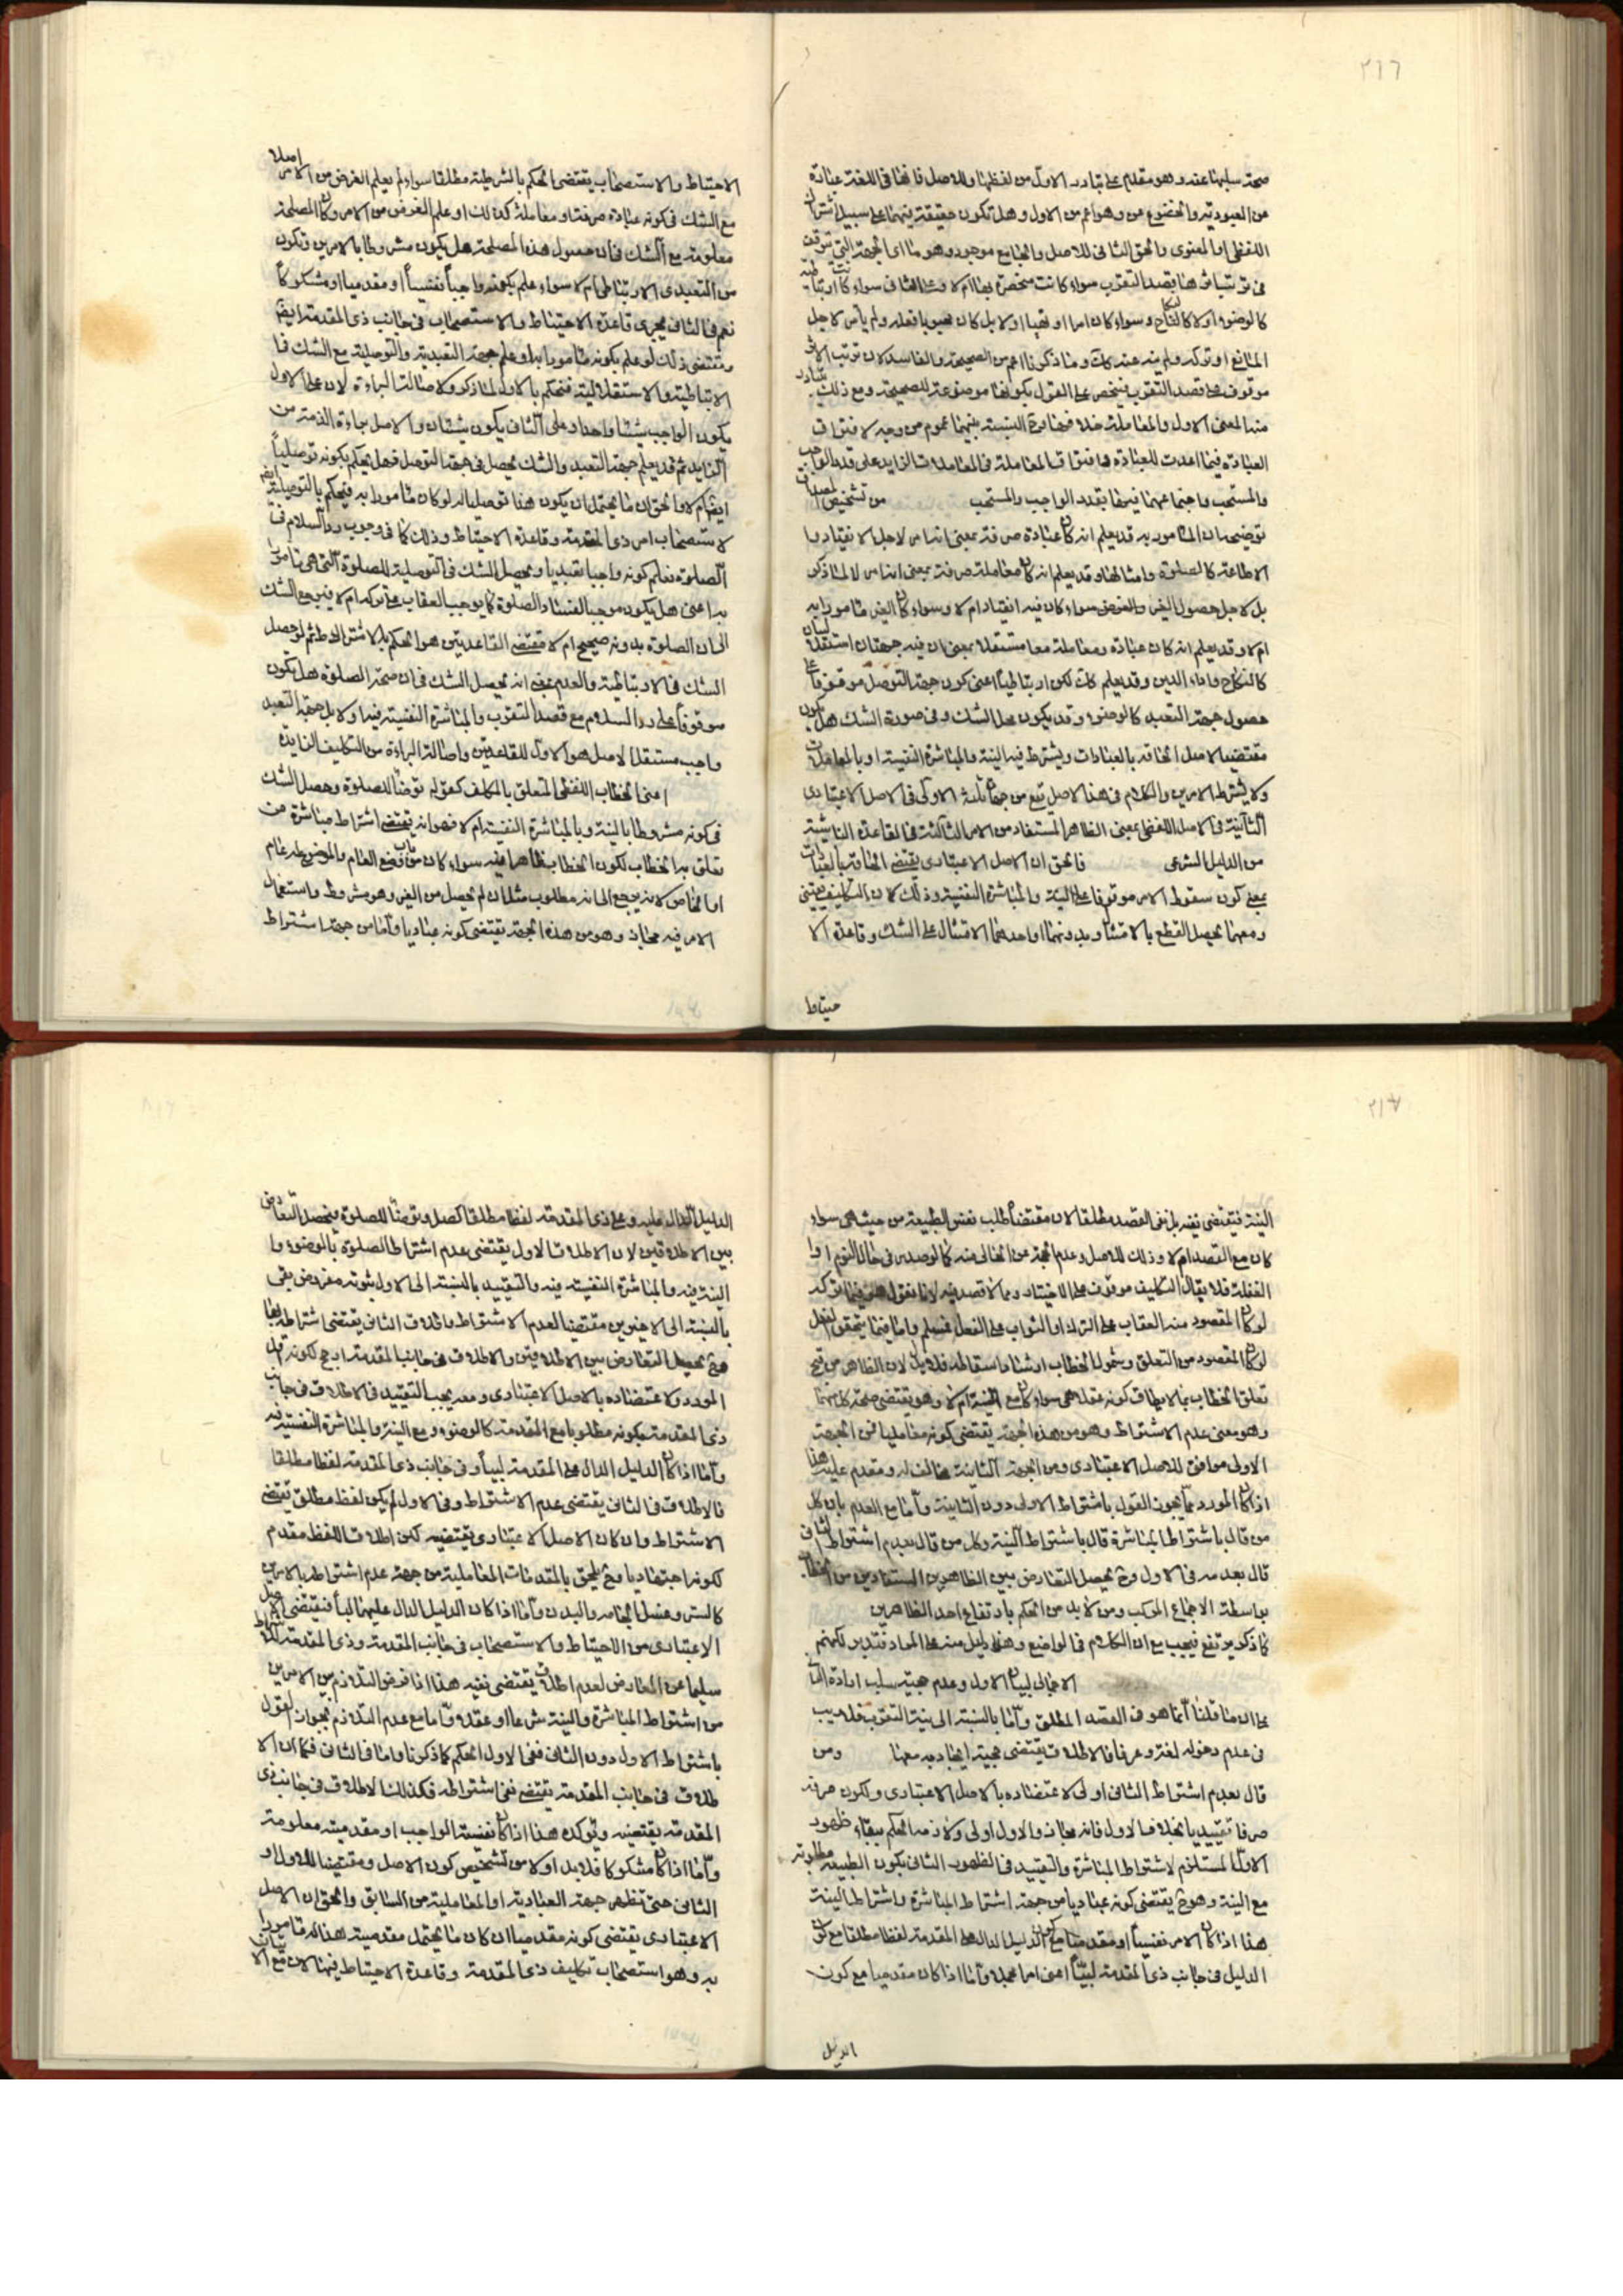 ٢١٦
صحة سلبها عنه وهو مقدم على تبادر الاول من لفظها وللاصل فانها فى اللغة عبارة
عن العبودية والخضوع عن وهو اعم من الاول وهل تكون حقيقة فيهما على سبيل اشتراك
اللفظى او المعنوى والحق الثانى للاصل والجامع موجود وهو ما اى الجهة التى يتوقف
كالوضوء او لا كالنكاح وسواء كان امرا او نهيا او لا بل كان
موقوف على قصد التقرب فيختص على القول بكونها موضوعة للصحيحة ومع ذلك يتبادر
منه المعنى الاول والمعاملة خلافها فمادة النسبة بينهما عموم من وجه لافتراق
العبادة فيما اعدت للعبادة وافتراق المعاملة فى المعاملات الزايد على قدر الواجب
والمستحب واجتماعهما فيهما بقدر الواجب والمستحب من تشخيص
توضيحه ان المامور به قد يعلم انه كان عبادة صرفة بمعنى انه امر لاجل الانقياد و
الاطاعة كالصلوة وامثالها وقد يعلم انه كان معاملة صرفة بمعنى انه امر لا لما ذكر
بل لاجل حصول الغير والغرض سواء كان فيه انقياد ام لا وسواء كان الغير مامورا به
ام لا وقد يعلم انه كان عبادة ومعاملة معا مستقلا بمعنى ان فيه جهتان استقلاليتان
كالنكاح واداء الدين وقد يعلم كك لكن ارتباطيا اعنى كون جهة التوصل موقوفا على
حصول جهة التعبد كالوضوء وقد يكون محل الشك وفى صورة الشك هل يكون
مقتضى الاصل الحاقه بالعبادات ويشترط فيه النية والمباشرة النفسية او بالمعاملات
ولا يشترط الامرين والكلام فى هذا الاصل يقع من جهات ثلثة الاولى فى الاصل الاعتبارى
الثانية فى الاصل اللفظى بمعنى الظاهر المستفاد من الامر الثالثة فى القاعدة الناشئة
من الدليل الشرعى فالحق ان الاصل الاعتبارى يقتضى الحاقه بالعبادات
بمعنى كون سقوط الامر موقوفا على النية والمباشرة النفسية وذلك لان التكليف يقينى
ومعهما يحصل القطع بالامتثال وبدونهما او احدهما الامتثال على الشك وقاعدة الا
حتياط
الاحتياط والاستصحاب يقتضى الحكم بالشرطية مطلقا سواء لم يعلم الغرض من الامر اصلا
مع الشك فى كونه عبادة صرفة او معاملة كذلك او علم الغرض من الامر وكان المصلحة
معلومة مع الشك فى ان حصول هذه المصلحة هل يكون مشروطا بالامرين وتكون
من التعبدى الارتباطى ام لا سواء علم بكونه واجباً نفسياً او مقدميا او مشكوكاً
نعم فى الثانى يجرى قاعدة الاحتياط والاستصحاب فى جانب ذى المقدمة ايضا
ومقتضى ذلك لو علم بكونه مامورا به وعلم جهة التعبدية والتوصلية مع الشك فى ا
لارتباطية والاستقلالية فنحكم بالاول لما ذكر ولاصالة البراءة لان على الاول
يكون الواجب شيئا واحدا وعلى الثانى يكون شيئان والاصل براءة الذمة من
الزايد ثم قد يعلم جهة التعبد والشك يحصل فى جهة التوصل فهل يحكم بكونه توصلياً
ايضا ام لا والحق ان ما يحتمل ان يكون هذا توصلا له لو كان مامورا به فيحكم بالتوصلية ايضا
لاستصحاب امر ذى المقدمة وقاعدة الاحتياط وذلك كما فى وجوب رد السلام فى
الصلوة نعلم كونه واجبا تعبديا ويحصل الشك فى التوصلية للصلوة التى هى مامورا
به اعنى هل يكون موجبا لفساد الصلوة كما يوجب العقاب على تركه ام لا فيرجع الشك
الى ان الصلوة بدونه صحيح ام لا فمقتضى القاعدتين هو الحكم بالاشتراط ثم لو حصل
الشك فى الارتباطية والعدم بمعنى انه يحصل الشك فى ان صحة الصلوة هل يكون
موقوفاً على رد السلام مع قصد التقرب والمباشرة النفسية فيه او لا بل جهة التعبد
واجب مستقل الاصل هو الاول للقاعدتين واصالة البراءة من التكليف الزايدة
اعنى الخطاب اللفظى المتعلق بالمكلف كقوله توضأ للصلوة وحصل الشك
فى كونه مشروطا بالنية وبالمباشرة النفسية ام لا فهو انه يقتضى اشتراط مباشرة من
تعلق به الخطاب لكون الخطاب ظاهرا فيه سواء كان من باب وضع العام والموضوع له عام
او الخاص لانه يرجع الى انه مطلوب مثلا ان لم يحصل من الغير وهو مشروط واستعمال
الامر فيه مجاز وهو من هذه الجهة يقتضى كونه عباديا واما من جهة اشتراط
٢١٧
النية فيقتضى نفيه بل نفى القصد مطلقا لان مقتضاه طلب نفس الطبيعة من حيث هى سواء
كان مع القصد ام لا وذلك للاصل وعدم الحجة عن الخالى منه كما لو صدر فى حال النوم او ا
لغفلة فلا يقال التكليف موقوف على الاختيار وما لا قصد فيه لانا نقول هو فيما تركه
لو كان المقصود منه العقاب على الترك او الثواب على الفعل فمسلم واما فيما يتحقق الفعل
لو كان المقصود من التعلق وشمول الخطاب لاسقاطه فلا بل لان الظاهر من قبح
تعلق الخطاب بما لا يطاق كونه عقلا هى سواء كان مع النية ام لا وهو يقتضى صحة كل منهما
وهو معنى عدم الاشتراط وهو من هذه الجهة يقتضى كونه معامليا فمن الجهة
الاولى موافق للاصل الاعتبارى ومن الجهة الثانية مخالف له ومقدم عليه هذا
اذا كان المورد مما يجوز القول باشتراط الاولى دون الثانية واما مع العدم بان كل
من قال باشتراط المباشرة قال باشتراط النية وكل من قال بعدم اشتراط الثانى
قال بعدمه فى الاول وح يحصل التعارض بين الظاهرين المستفادين من الخطاب
بواسطة الاجماع المركب ومن لابد من الحكم بارتفاع احد الظاهرين
على ان ما قلنا انما هو فى القصد المطلق واما بالنسبة الى نية التقرب فلا ريب
فى عدم دخوله لغة وعرفا فالاطلاق يقتضى ومن
قال بعدم اشتراط الثانى اولى لاعتضاده بالاصل الاعتبارى ولكون صرفه
صرفا تقييديا بخلاف الاول فانه مجاز والاول اولى ولازمه الحكم ببقاء ظهور
الاول المستلزم لاشتراط المباشرة والتقييد فى الظهور الثانى بكون الطبيعة مطلوبة
مع النية وهو ح يقتضى كونه عباديا من جهة اشتراط المباشرة واشتراط النية
هذا اذا كان الامر نفسياً او مقدميا مع كون الدليل الدال على المقدمة لفظا مطلقا مع كون
الدليل فى جانب ذى المقدمة لبيّاً اعنى امرا مجملا واما اذا كان مقدميا مع كون
الدليل
الدليل الدال عليه وعلى ذى المقدمة لفظا مطلقا كصل وتوضأ للصلوة فيحصل التعارض
بين الاطلاقين لان الاطلاق الاول يقتضى عدم اشتراط الصلوة بالوضوء و ا
لنية فيه والمباشرة النفسية فيه والتقييد بالنسبة الى الاول ثبوته مفروض بقى
بالنسبة الى الاخيرين مقتضيا لعدم الاشتراط واطلاق الثانى يقتضى اشتراطه بهما
فح يحصل التعارض بين الاطلاقين والاطلاق فى جانب المقدمة ارجح لكونه اقل
المورد ولاعتضاده بالاصل الاعتبارى ومعه يجب التقييد فى الاطلاق فى جانب
ذى المقدمة بكونه مطلوبا مع المقدمة كالوضوء ومع النية والمباشرة النفسية فيه
واما اذا كان الدليل الدال على المقدمة لبياً وفى جانب ذى المقدمة لفظا مطلقا
فالاطلاق فى الثانى يقتضى عدم الاشتراط وفى الاول لم يكن لفظ مطلق يقتضى
الاشتراط وان كان الاصل الاعتبارى يقتضيه لكن اطلاق اللفظ مقدم
لكونه اجتهاديا وح يلحق بالمقدمات المعاملية من جهة عدم اشتراطه بالامرين
كالستر وغسل الجامه والبدن واما اذا كان الدليل الدال عليهما لبيا فيقتضى الاصل
الاعتبارى من الاحتياط والاستصحاب فى جانب المقدمة وذى المقدمة الاشتراط
سليما عن المعارض لعدم اطلاق يقتضى نفيه هذا اذا فرض التلازم بين الامرين
من اشتراط المباشرة والنية شرعا او عقلا واما مع عدم التلازم بجواز القول
باشتراط الاول دون الثانى ففى الاول الحكم كما ذكرنا واما فى الثانى فكما ان الا
طلاق فى جانب المقدمة يقتضى نفى اشتراطه فكذلك الاطلاق فى جانب ذى
المقدمة يقتضيه ويؤكده هذا اذا كان نفسية الواجب او مقدميته معلومة
واما اذا كان مشكوكا فلابد اولا من تشخيص كون الاصل ومقتضيا للاول او
الثانى حتى تظهر جهة العبادية او المعاملية من السابق والحق ان الاصل
الاعتبارى يقتضى كونه مقدميا ان كان ما يحتمل مقدميته هذا له مامورا
به وهو استصحاب تكليف ذى المقدمة وقاعدة الاحتياط فيهما لان مع الا